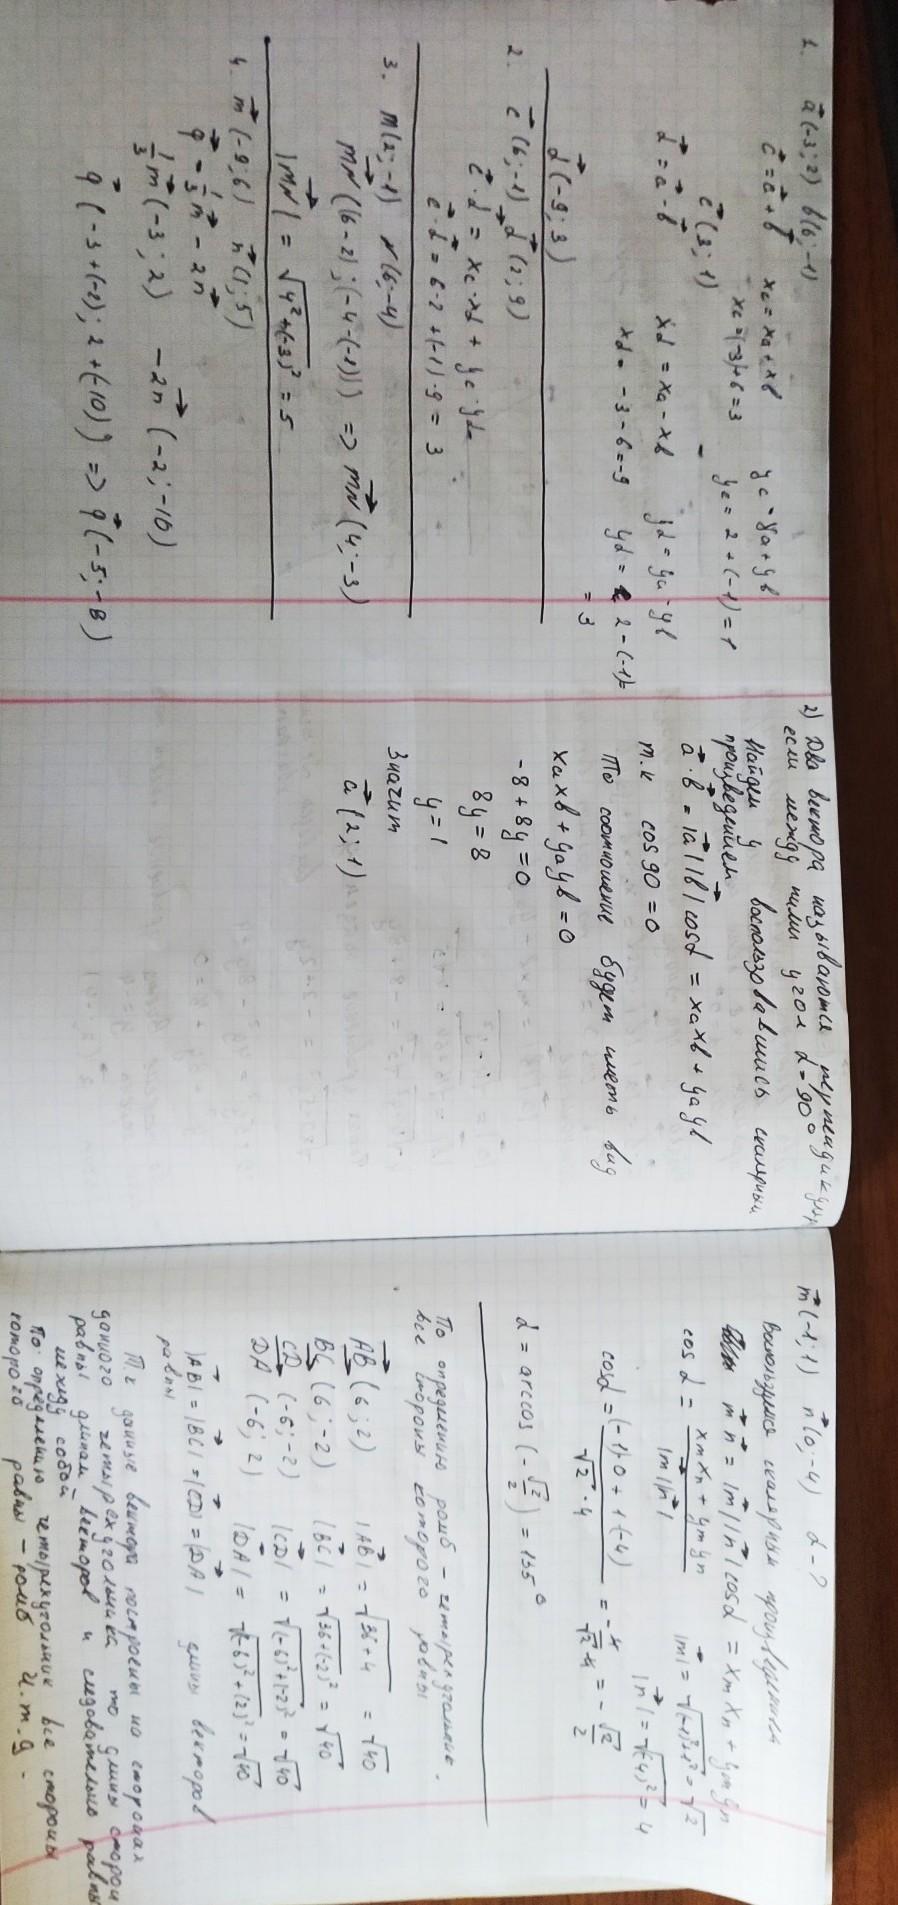 1. a⃗(-3; 2) b(6; -1)
c⃗ = a⃗ + b⃗ xc = xa + xb yc = ya + yb
xc = (-3)+6 = 3 yc = 2 + (-1) = 1
c⃗(3; 1)
d⃗ = a⃗ - b⃗ xd = xa - xb yd = ya - yb
xd = -3 - 6 = -9 yd = 2 - (-1) =
= 3
d⃗(-9; 3)
2. c⃗(6; -1) d⃗(2; 9)
c⃗ · d⃗ = xc · xd + yc · yd
c · d⃗ = 6·2 + (-1)·9 = 3
3. M(2; -1) N(6; -4)
MN⃗((6-2); (-4-(-1))) => MN⃗(4; -3)
|MN⃗| = √4² + (-3)² = 5
4. m⃗(-9; 6) n⃗(1; 5)
q⃗ = 1/3 m⃗ - 2n⃗
1/3 m⃗(-3; 2) -2n⃗(-2; -10)
q⃗(-3+(-2); 2+(-10)) => q⃗(-5; -8)
2) Два вектора называются перпендикуляр
если между ними угол α = 90°
Найдем y воспользовавшись скалярным
произведением
a⃗ · b⃗ = |a⃗||b⃗|cosα = xaxb + yayb
т.к cos90 = 0
То соотношение будет иметь вид
xaxb + yayb = 0
-8 + 8y = 0
8y = 8
y = 1
Значит
a⃗(2; 1)
m⃗(-1; 1) n⃗(0; -4) α - ?
Воспользуемся скалярным произведением
m⃗ n⃗ = |m⃗||n⃗|cosα = xmxn + ymyn
cosα = xmxn + ymyn / |m⃗||n⃗| |m⃗| = √(-1)²+1² = √2
|n⃗| = √(-4)² = 4
cosα = (-1)·0 + 1·(-4) / √2 · 4 = -4 / √2·4 = -√2/2
α = arccos(-√2/2) = 135°
По определению ромб - четырехугольник,
все стороны которого равны
AB⃗(6; 2) |AB⃗| = √36+4 = √40
BC⃗(6; -2) |BC⃗| = √36+(-2)² = √40
CD⃗(-6; -2) |CD⃗| = √(-6)²+(-2)² = √40
DA⃗(-6; 2) |DA⃗| = √(-6)²+(2)² = √40
|AB⃗| = |BC⃗| = |CD⃗| = |DA⃗| длины векторов
равны
Т.к данные вектора построены на сторонах
данного четырехугольника то длины сторон
равны длинам векторов и следовательно равны
между собой
По определению четырехугольник все стороны
которого равны - ромб ч.т.д.